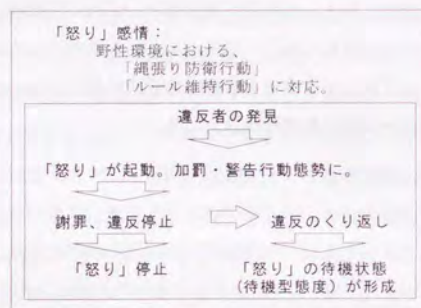 「怒り」感情：
野性環境における、
「縄張り防衛行動」
「ルール維持行動」に対応。
違反者の発見
「怒り」が起動。加罰・警告行動態勢に。
謝罪、違反停止
違反のくり返し
「怒り」停止
「怒り」の待機状態
(待機型態度) が形成